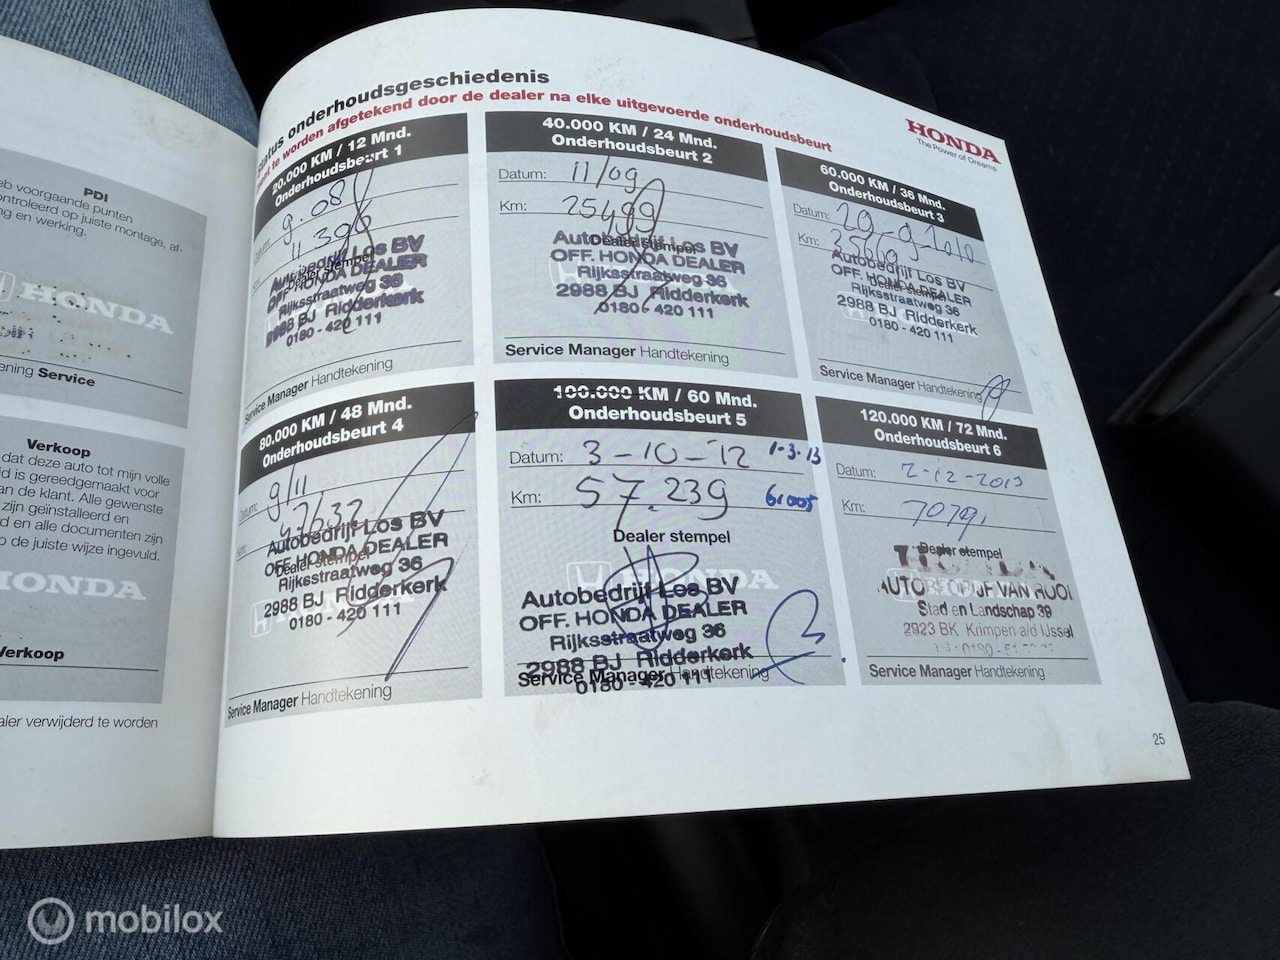 PDI
eb voorgaande punten
ontroleerd op juiste montage, af-
ng en werking.
HONDA
ening Service
Verkoop
dat deze auto tot mijn volle
id is gereedgemaakt voor
an de klant. Alle gewenste
zijn geïnstalleerd en
d en alle documenten zijn
p de juiste wijze ingevuld.
HONDA
Verkoop
aler verwijderd te worden
tatus onderhoudsgeschiedenis
te worden afgetekend door de dealer na elke uitgevoerde onderhoudsbeurt
HONDA
The Power of Dreams
20.000 KM / 12 Mnd.
Onderhoudsbeurt 1
9.08
11.396
Dealer stempel
Autobedrijf Los BV
OFF. HONDA DEALER
Rijksstraatweg 36
2988 BJ Ridderkerk
0180 - 420 111
Service Manager Handtekening
40.000 KM / 24 Mnd.
Onderhoudsbeurt 2
Datum: 11/09
Km: 25499
Dealer stempel
Autobedrijf Los BV
OFF. HONDA DEALER
Rijksstraatweg 36
2988 BJ Ridderkerk
0180 - 420 111
Service Manager Handtekening
60.000 KM / 36 Mnd.
Onderhoudsbeurt 3
Datum: 29-9-2010
Km: 35669
Dealer stempel
Autobedrijf Los BV
OFF. HONDA DEALER
Rijksstraatweg 36
2988 BJ Ridderkerk
0180 - 420 111
Service Manager Handtekening
80.000 KM / 48 Mnd.
Onderhoudsbeurt 4
Datum: 9/11
Km: 47632
Dealer stempel
Autobedrijf Los BV
OFF. HONDA DEALER
Rijksstraatweg 36
2988 BJ Ridderkerk
0180 - 420 111
Service Manager Handtekening
100.000 KM / 60 Mnd.
Onderhoudsbeurt 5
Datum: 3-10-'12 1-3-13
Km: 57.239 61005
Dealer stempel
HONDA
Autobedrijf Los BV
OFF. HONDA DEALER
Rijksstraatweg 36
2988 BJ Ridderkerk
0180 - 420 111
Service Manager Handtekening
120.000 KM / 72 Mnd.
Onderhoudsbeurt 6
Datum: 2-12-2013
Km:
Dealer stempel
HONDA
AUTOBEDRIJF VAN ROOI
Stad en Landschap 39
2923 BK Krimpen a/d IJssel
Service Manager Handtekening
25
mobilox